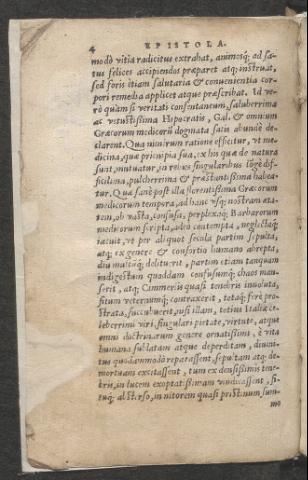 4 EPISTOLA.
modò vitia radicitus extrahat, animosq; ad sa-
tus felices accipiendos præparet atq; instruat,
sed foris etiam salutaria & convenientia cor-
pori remedia applicet atque præscribat. Id ve-
rò quàm sit veritati consentaneum, saluberrima
ac vetustissima Hipocratis, Gal. & omnium
Græcorum medicorū dogmata satis abundè de-
clarent. Qua nimirum ratione efficitur, vt me-
dicina, quæ principia sua, ex his quæ de natura
sunt, mutuatur, in rebus singularibus lōgè dif-
ficilima, pulcherrima & præstantissima habea-
tur. Qua sanè post illa florentissima Græcorum
medicorum tempora, ad hanc vsq; nostram æta-
tem, ob vasta, confusa, perplexaq; Barbarorum
medicorum scripta, adeò contempta, neglectaq;
iacuit, vt per aliquot secula partim sepulta,
atq; ex genere & consortio humano abrepta,
diu multūq; delituerit, partim etiam tanquam
indigestum quoddam confusumq; chaos man-
serit, atq; Cimmeriis quasi tenebris inuoluta,
situm veternumq; contraxerit, totaq; ferè pro-
strata, succubuerit, nisi illam, totius Italiæ ce-
leberrimi viri, singulari pietate, virtute, atque
omni doctrinarum genere ornatissimi, è vita
humana sublatam atque deperditam, diuini-
tus quodāmmodò reparassent, sepultam atq; de-
mortuam excitassent, tum ex densissimis tene-
bris, in lucem exoptatissimam vindicassent, si-
tuq; absterso, in nitorem quasi pristinum sum-
mo